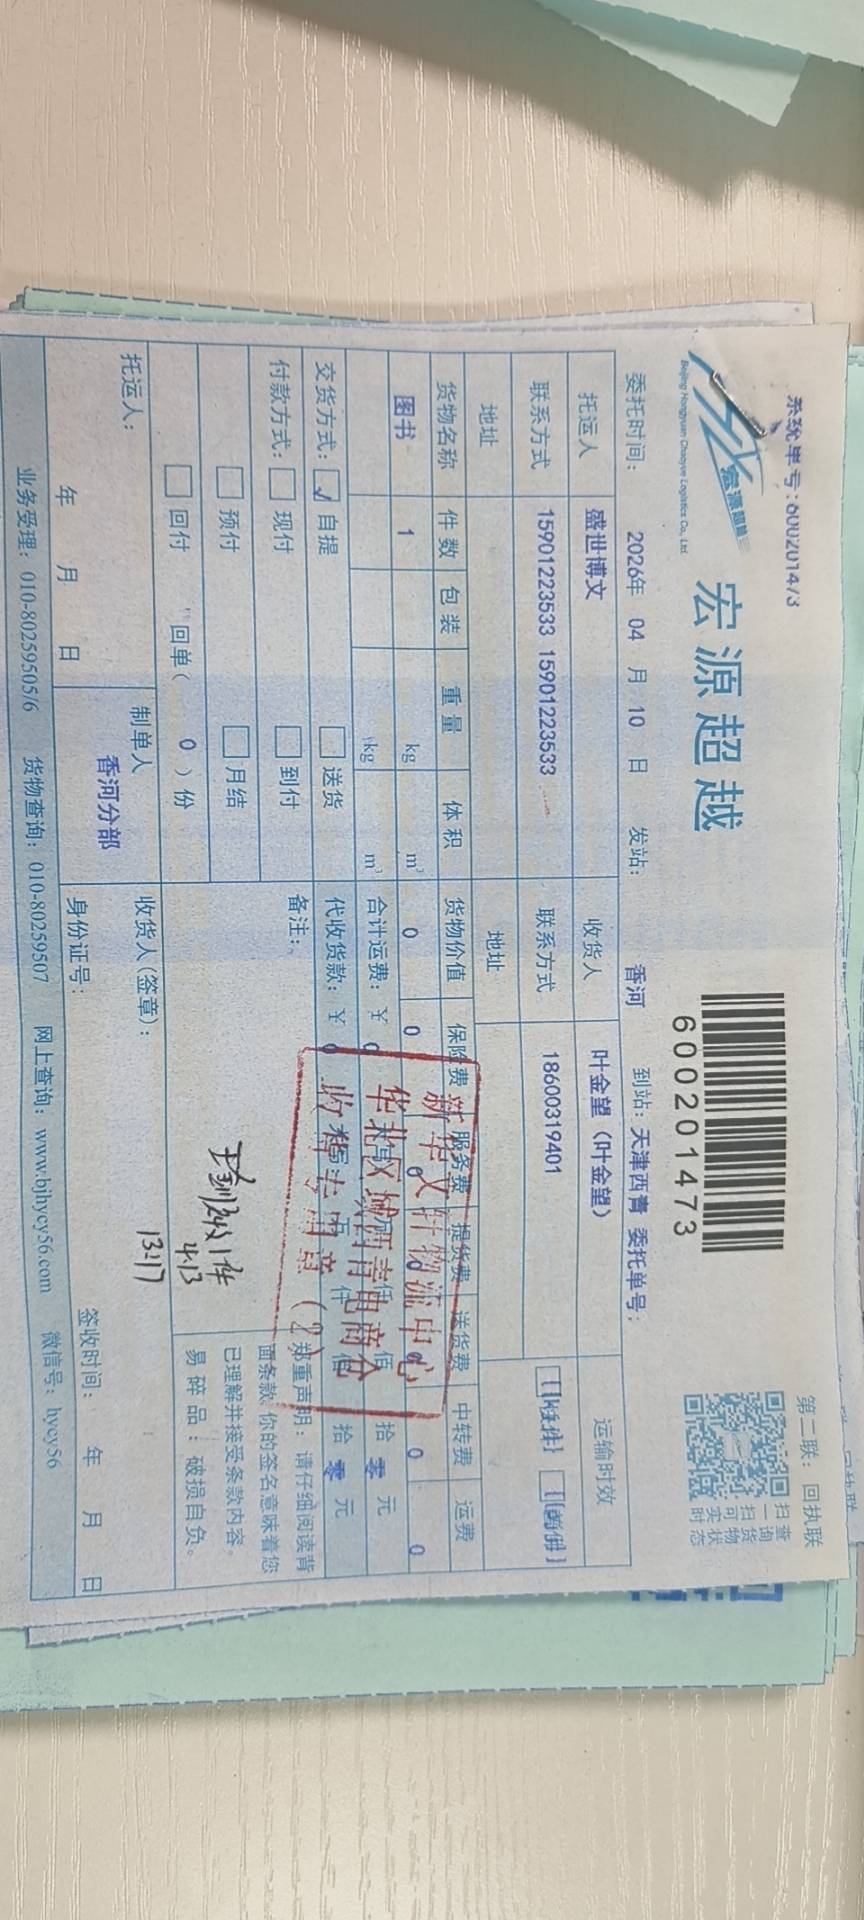 系统单号:6002014/3
第二联：回执联
宏源超越
Beijing Hongyuan Chaoyue Logistics Co., Ltd
宏源超越
6002001473
扫一扫可实时
查询货物状态
委托时间： 2026年 04 月 10 日 发站： 香河 到站：天津西青 委托单号：
托运人 盛世博文 收货人 叶金望（叶金望） 运输时效
联系方式 15901223533 15901223533 联系方式 18600319401
地址 地址
货物名称 件数 包装 重量 体积 货物价值 保险费 服务费 提货费 送货费 中转费 运费
图书 1 kg m³ 0 0 0 0 0 0 0
kg m³ 合计运费：￥ 0 万 仟 佰 拾 零 元
交货方式： ✓ 自提 送货 代收货款：￥ 0 万 仟 佰 拾 零 元
付款方式： 现付 到付 备注：
预付 月结
回付 回单（ 0 ）份
新华文轩物流中心
华北区域西青电商仓
收稽专用章（2）
郑重声明：请仔细阅读背
面条款，你的签名意味着您
已理解并接受条款内容。
易碎品：破损自负。
4.13
13:17
托运人： 制单人 收货人(签章)：
香河分部
年 月 日 身份证号： 签收时间： 年 月 日
业务受理：010-80259505/6 货物查询：010-80259507 网上查询：www.bjhycy56.com 微信号：hycy56